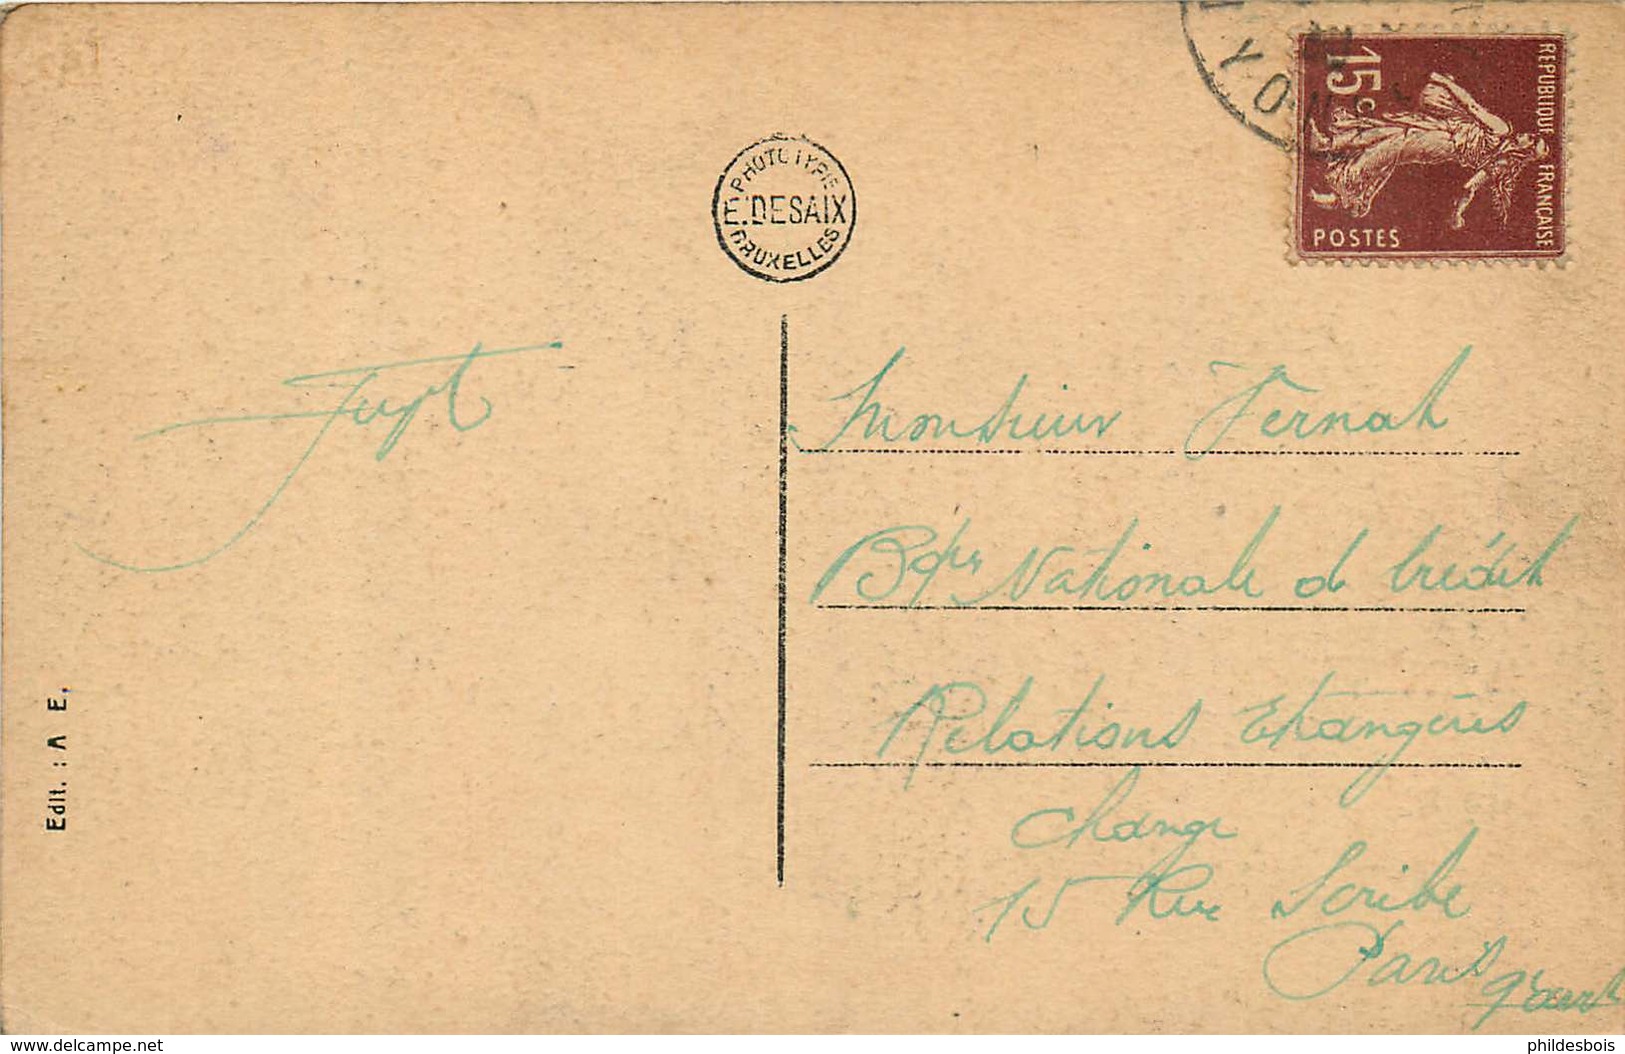 PHOTOTYPIE
E. DESAIX
BRUXELLES
YON
REPUBLIQUE FRANÇAISE
15c
POSTES
Monsieur Fernah
Bque Nationale de Crédit
Relations Etrangères
Change
15 Rue Scribe
Paris
9e arrt
Edit. : A E.
www.delcampe.net
phildesbois